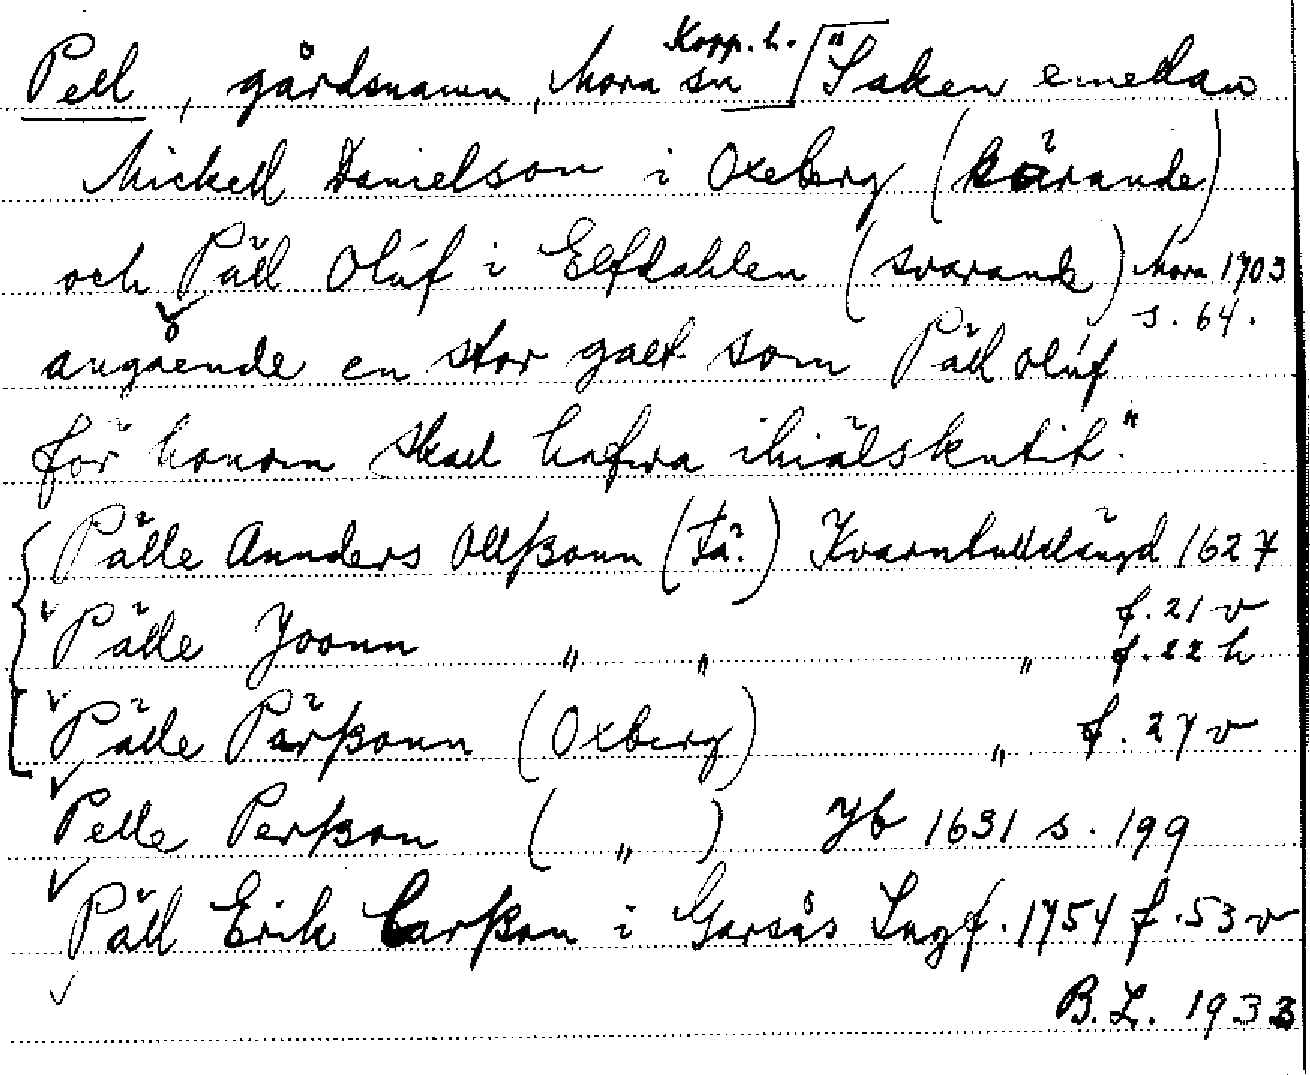 Pell, gårdsnamn, Mora sn Kopp. l. "Saken emellan
Mickell Danielson i Oxeberg (kärande)
och Päll Oluf i Elfdahlen (svarande) Mora 1703
s. 64.
angående en stor galt som Päll Oluf
för honom skall hafwa ihiälskutit."
Pälle Annders Ollßonn (Fä?) Kvarntullslängd 1627
f. 21 v
Pälle Joonn " " " f. 22 h
Pälle Pärßonn (Oxberg) " f. 27 v
Pelle Perßon ( " ) Jb 1631 s. 199
Päll Erik Larßon i Garsås Lngf. 1754 f. 53 v
B. L. 1933